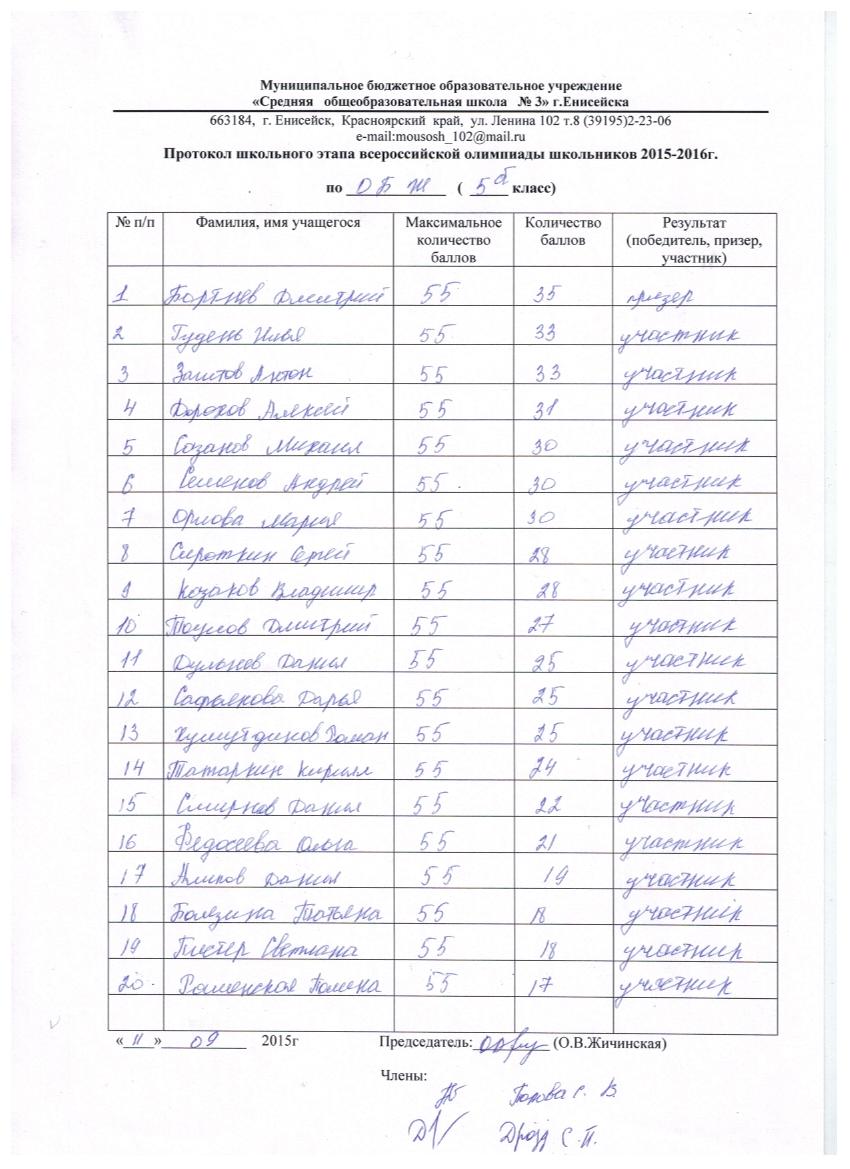 Муниципальное бюджетное образовательное учреждение
«Средняя общеобразовательная школа № 3» г.Енисейска
663184, г. Енисейск, Красноярский край, ул. Ленина 102 т.8 (39195)2-23-06
e-mail:mousosh_102@mail.ru
Протокол школьного этапа всероссийской олимпиады школьников 2015-2016г.
по ОБЖ ( 5б класс)
№ п/п Фамилия, имя учащегося Максимальное количество баллов Количество баллов Результат (победитель, призер, участник)
1 Бортнев Дмитрий 55 35 призер
2 Гудень Илья 55 33 участник
3 Антон 55 33 участник
4 Дорохов Алексей 55 31 участник
5 Созанов Михаил 55 30 участник
6 Семенов Андрей 55 30 участник
7 Орлова Мария 55 30 участник
8 Сироткин Сергей 55 28 участник
9 Козаков Владимир 55 28 участник
10 Дмитрий 55 27 участник
11 Данил 55 25 участник
12 Сафьянова Дарья 55 25 участник
13 Хушутдинов Роман 55 25 участник
14 Татаркин Кирилл 55 24 участник
15 Смирнов Данил 55 22 участник
16 Федосеева Ольга 55 21 участник
17 Данил 55 19 участник
18 Болезина Татьяна 55 18 участник
19 Светлана 55 18 участник
20. Раменская Полина 55 17 участник
« 11 » 09 2015г Председатель: (О.В.Жичинская)
Члены:
Попова С. В.
Дрозд С.П.